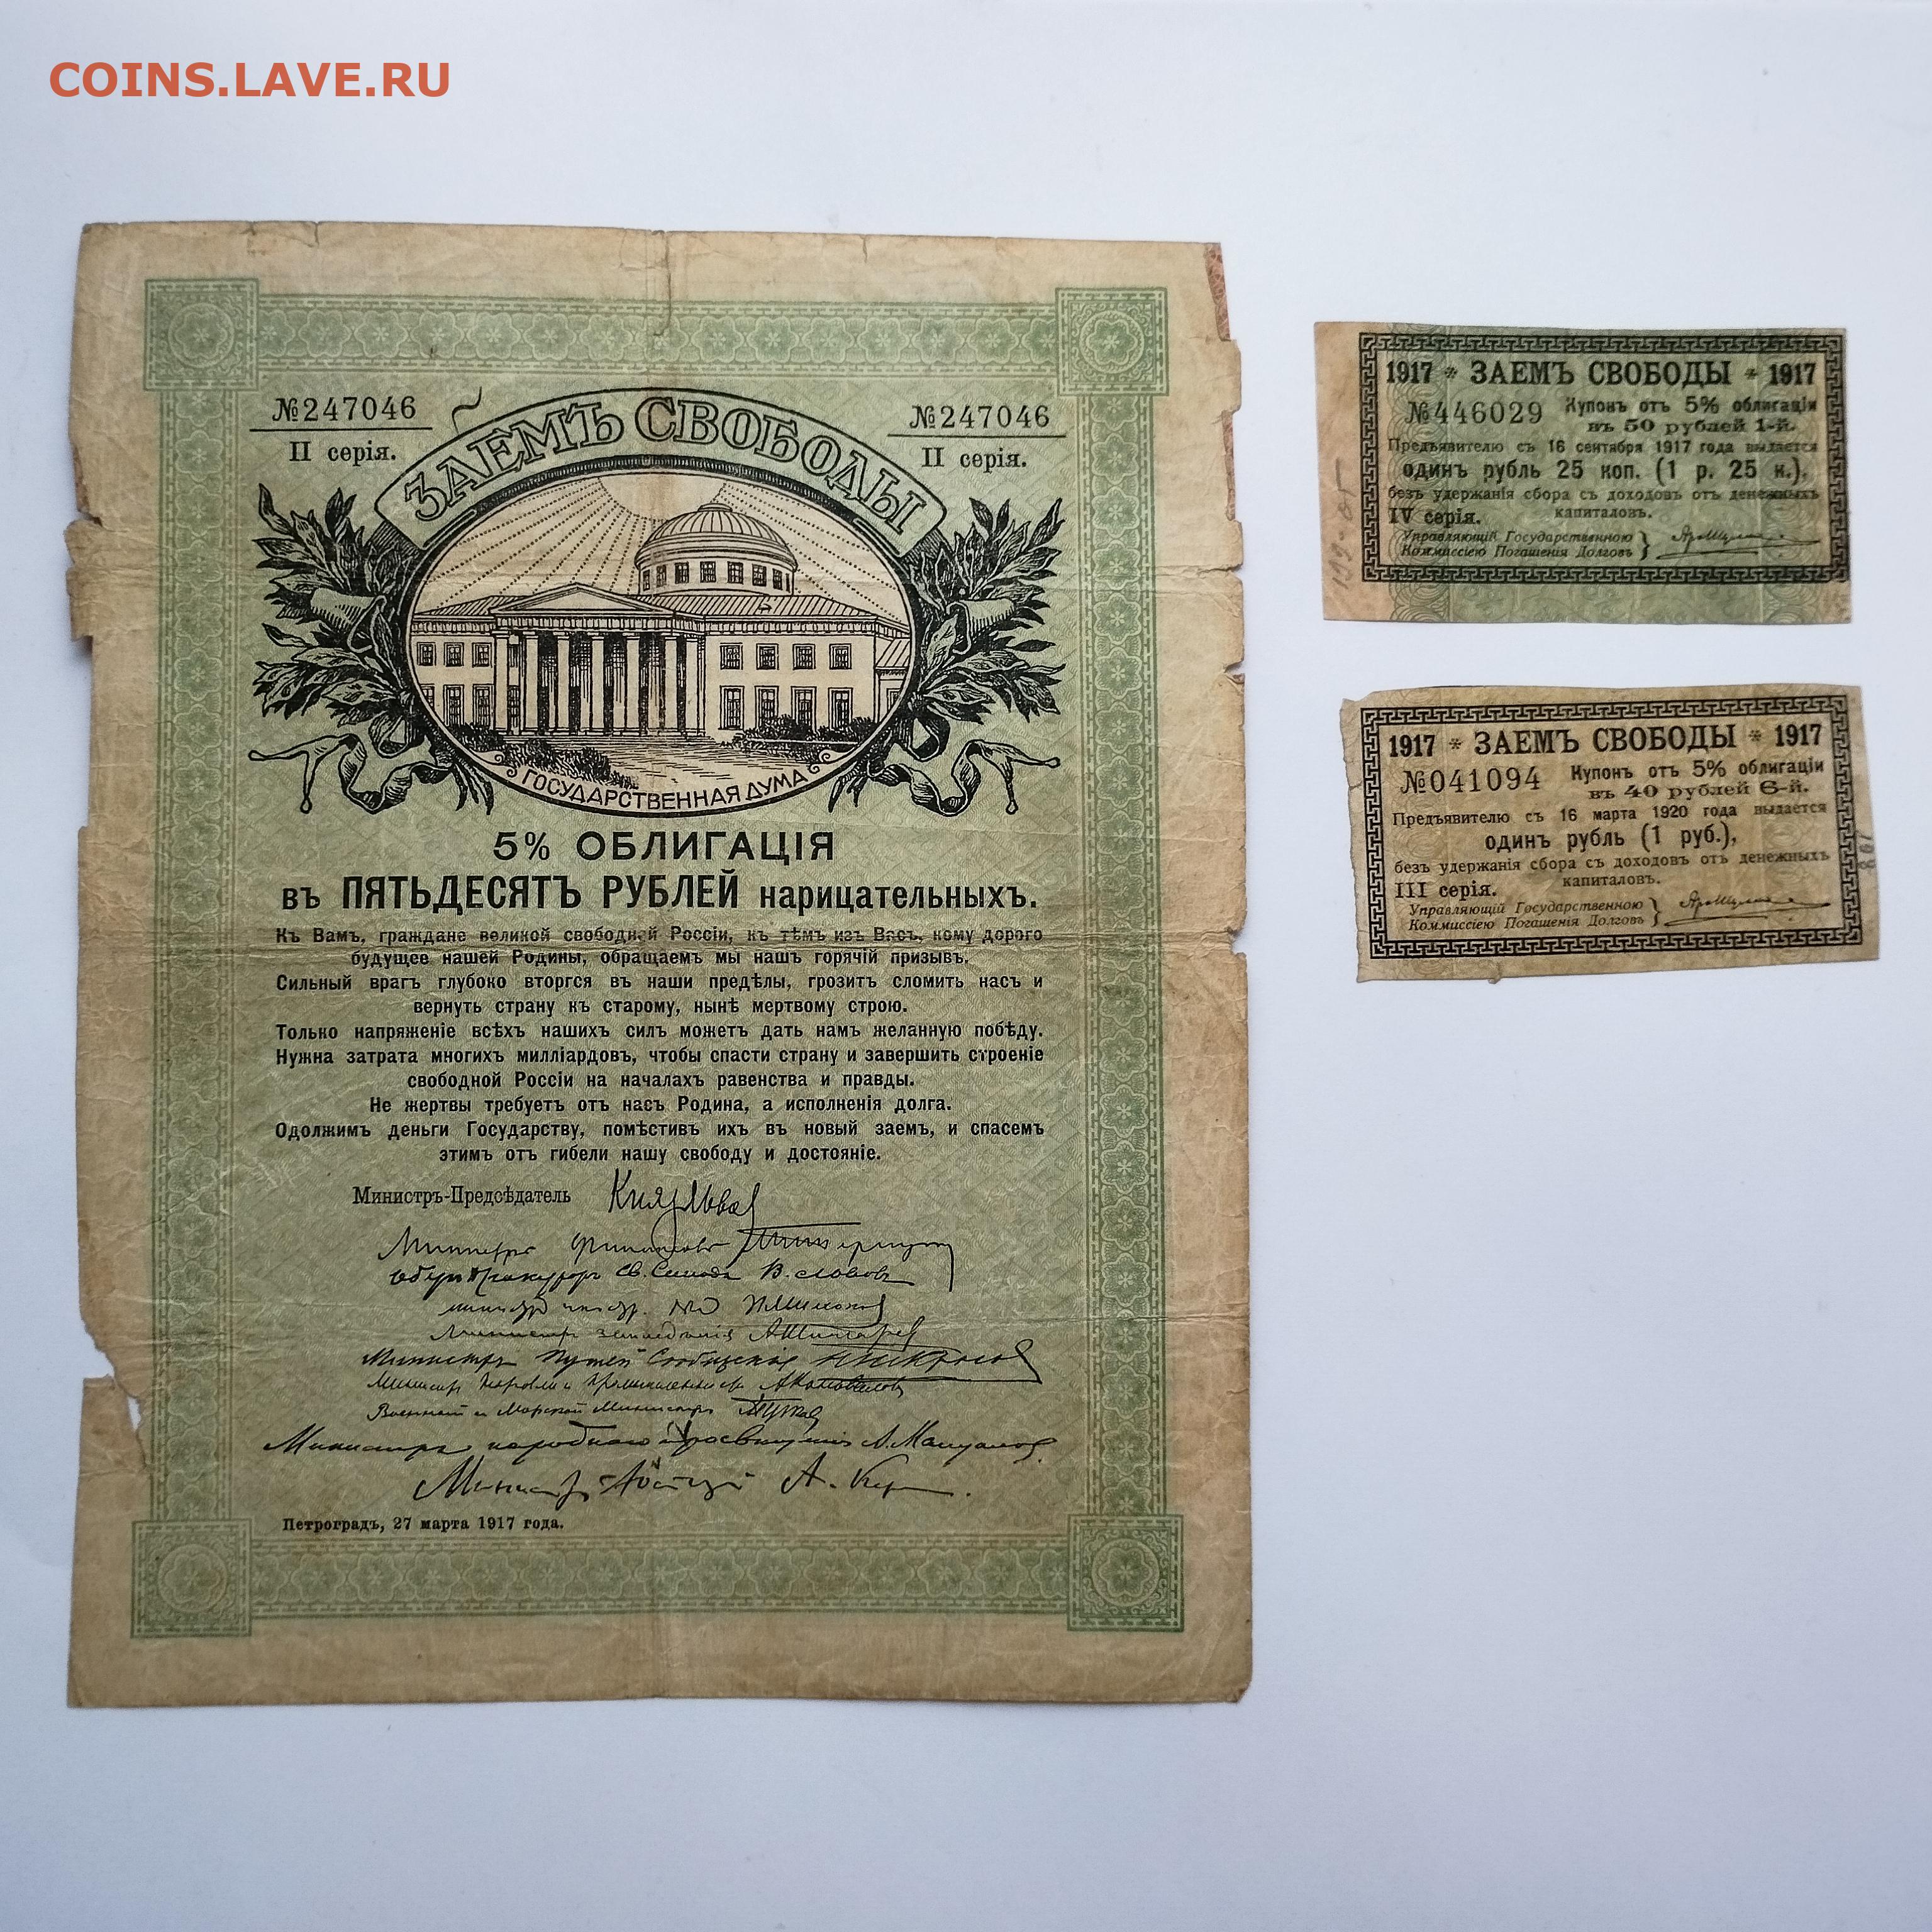 COINS.LAVE.RU
№247046
II серія.
№247046
II серія.
ЗАЕМЪ СВОБОДЫ
ГОСУДАРСТВЕННАЯ ДУМА
5% ОБЛИГАЦІЯ
въ ПЯТЬДЕСЯТЪ РУБЛЕЙ нарицательныхъ.
Къ Вамъ, граждане великой свободной Россіи, къ тѣмъ изъ Васъ, кому дорого
будущее нашей Родины, обращаемъ мы нашъ горячій призывъ.
Сильный врагъ глубоко вторгся въ наши предѣлы, грозитъ сломить насъ и
вернуть страну къ старому, нынѣ мертвому строю.
Только напряженіе всѣхъ нашихъ силъ можетъ дать намъ желанную побѣду.
Нужна затрата многихъ милліардовъ, чтобы спасти страну и завершить строеніе
свободной Россіи на началахъ равенства и правды.
Не жертвы требуетъ отъ насъ Родина, а исполненія долга.
Одолжимъ деньги Государству, помѣстивъ ихъ въ новый заемъ, и спасемъ
этимъ отъ гибели нашу свободу и достояніе.
Министръ-Предсѣдатель Князь Львов
Министръ Финансовъ
Оберъ Прокуроръ Св. Синода В. Львовъ
Министръ земледѣлія
Министръ Путей Сообщенія
Министръ Торговли и Промышленности А Коноваловъ
Военный и Морской Министръ
Министръ народнаго просвѣщенія А. Мануиловъ.
Министръ Юстиціи А. Кер
Петроградъ, 27 марта 1917 года.
1917 * ЗАЕМЪ СВОБОДЫ * 1917
№446029 Купонъ отъ 5% облигаціи
въ 50 рублей 1-й.
Предъявителю съ 16 сентября 1917 года выдается
одинъ рубль 25 коп. (1 р. 25 к.),
безъ удержанія сбора съ доходовъ отъ денежныхъ
капиталовъ.
IV серія.
Управляющій Государственною
Коммиссіею Погашенія Долговъ
1917 * ЗАЕМЪ СВОБОДЫ * 1917
№041094 Купонъ отъ 5% облигаціи
въ 40 рублей 6-й.
Предъявителю съ 16 марта 1920 года выдается
одинъ рубль (1 руб.),
безъ удержанія сбора съ доходовъ отъ денежныхъ
капиталовъ.
III серія.
Управляющій Государственною
Коммиссіею Погашенія Долговъ